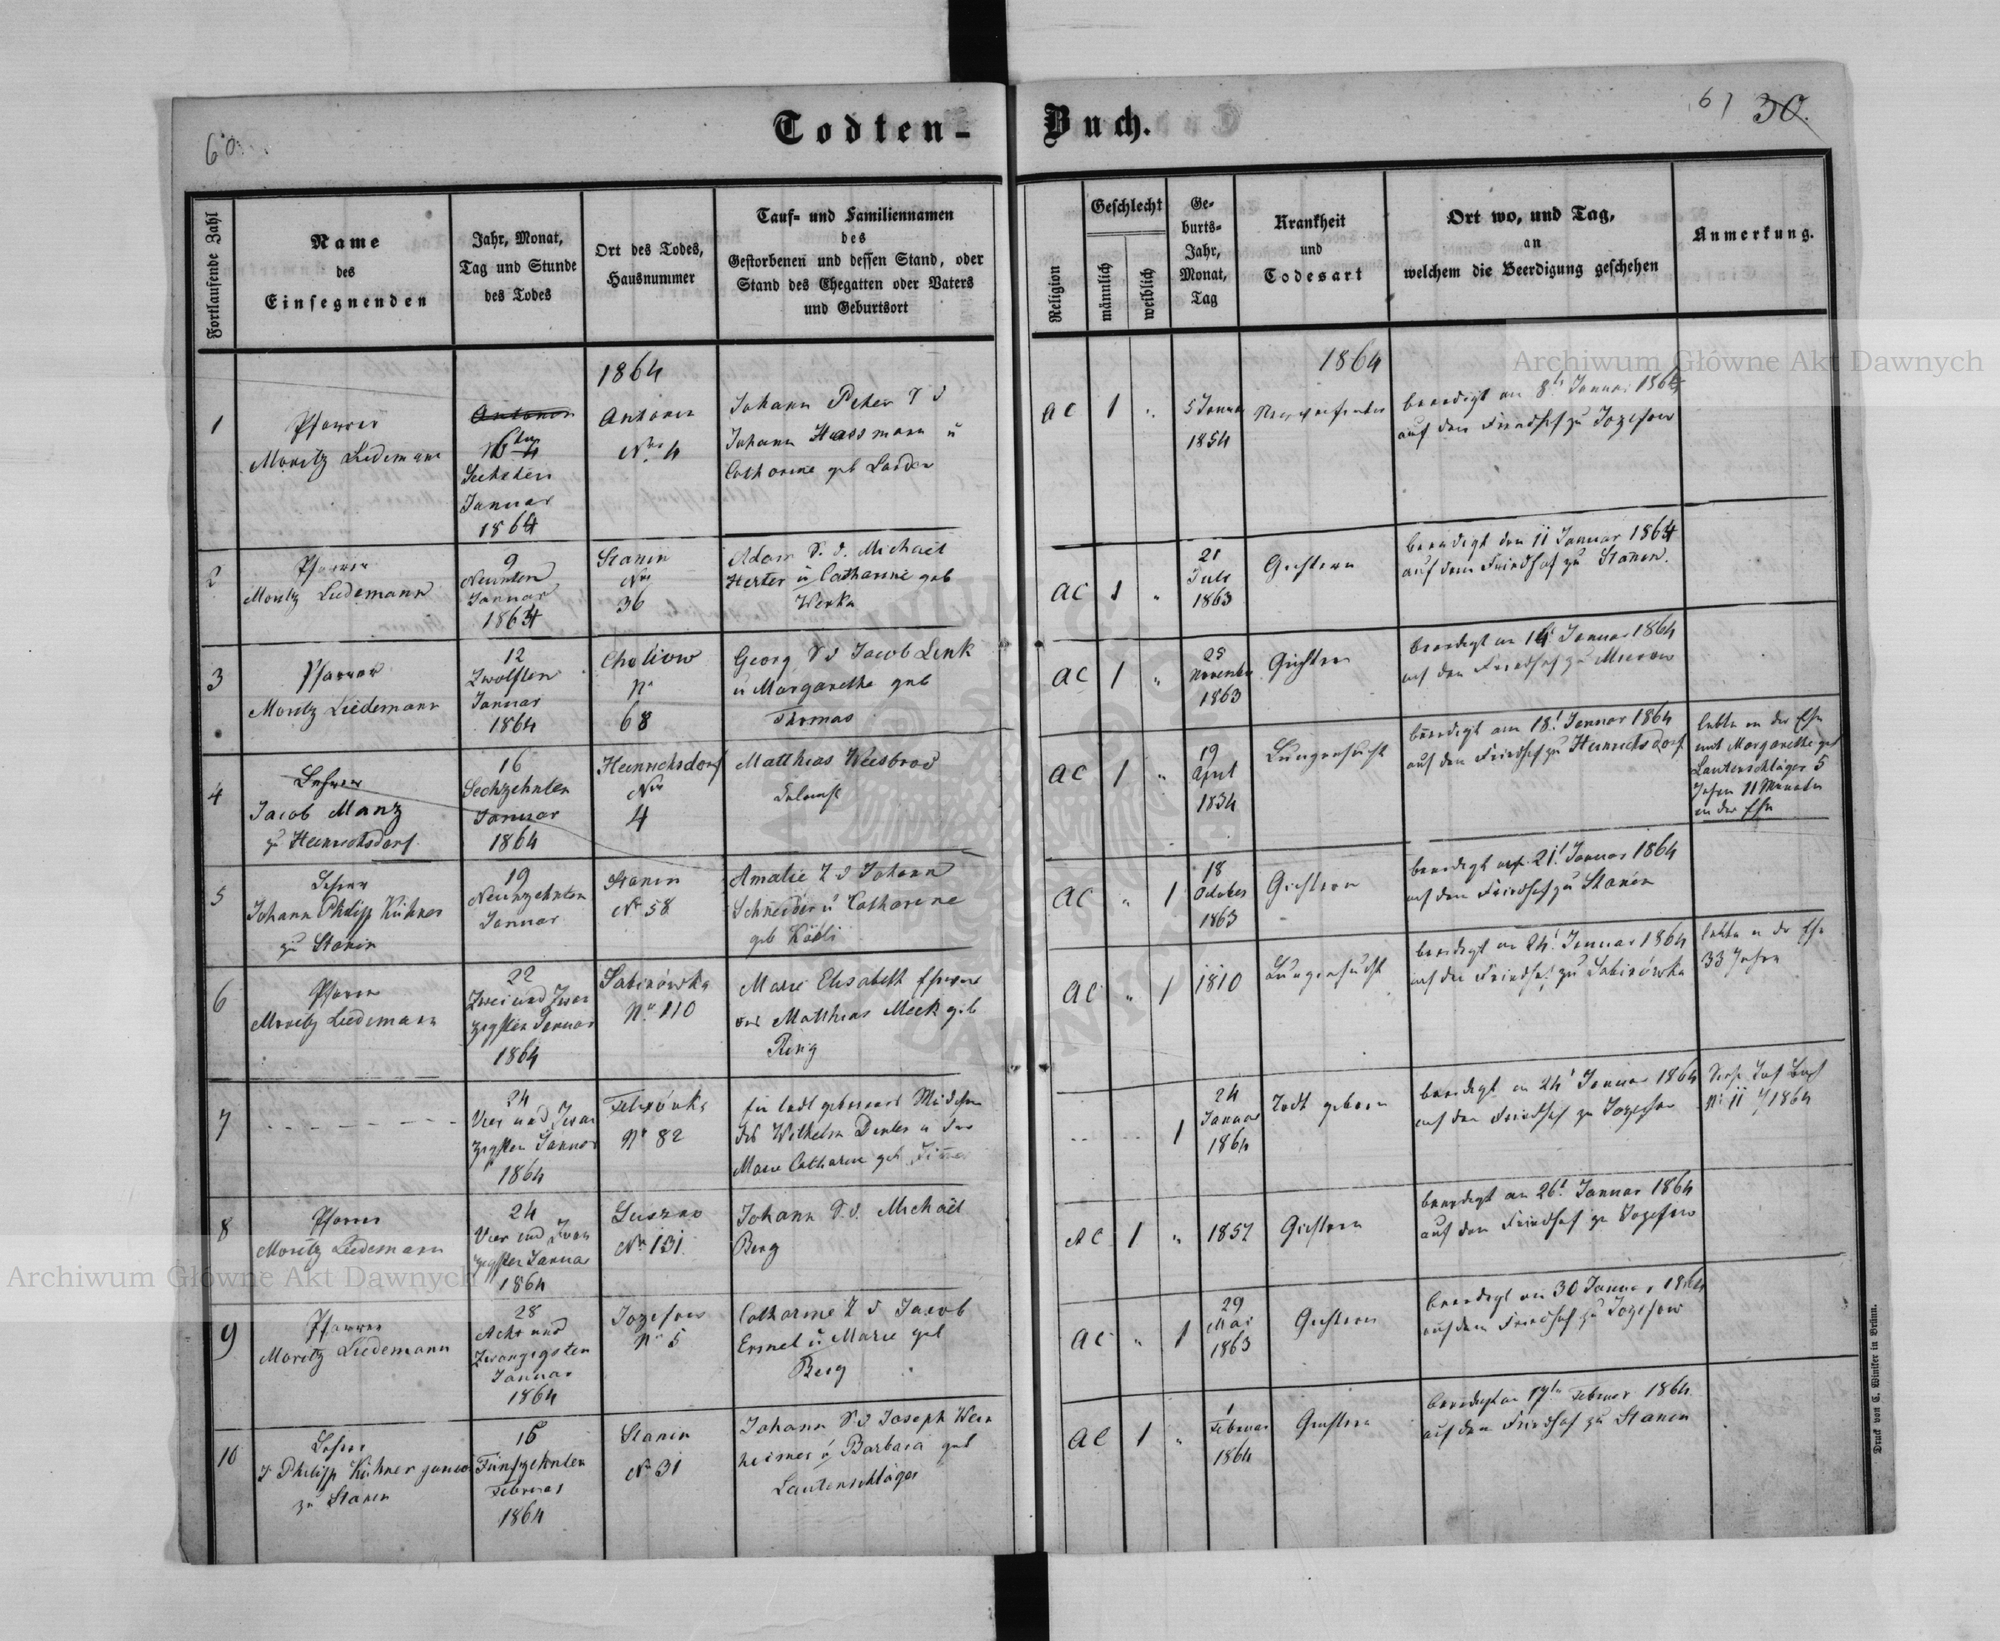 60.
Todten-
Buch.
61 30.
Fortlaufende Zahl
Name
des
Einsegnenden
Jahr, Monat,
Tag und Stunde
des Todes
Ort des Todes,
Hausnummer
Tauf- und Familiennamen
des
Gestorbenen und dessen Stand, oder
Stand des Ehegatten oder Vaters
und Geburtsort
Religion
Geschlecht
männlich
weiblich
Ge-
burts-
Jahr,
Monat,
Tag
Krankheit
und
Todesart
Ort wo, und Tag,
an
welchem die Beerdigung geschehen
Anmerkung.
1864
1864
1
Pfarrer
Moritz Liedemann
Sechsten
Januar
1864
Antonin
Nro 4
Johann Peter S d
Johann Hassmann u
Catharine geb
AC
1
"
5 Januar
1854
beerdigt am 8t Januar 1864
auf dem Friedhof zu Jozefow
2
Pfarrer
Moritz Liedemann
9
Neunten
Januar
1864
Stanin
Nro
36
Adam S. d. Michael
Herter u Catharine geb
Werka
AC
1
"
21
Juli
1863
Gichtern
beerdigt den 11 Januar 1864
auf dem Friedhof zu Stanin.
3
Pfarrer
Moritz Liedemann
12
Zwolften
Januar
1864
Choliow
N.
68
Georg S d Jacob Link
u Margarethe geb
Thomas
AC
1
"
25
November
1863
Gichtern
beerdigt am 14t Januar 1864
auf dem Friedhof zu Mierow
4
Lehrer
Jacob Manz
zu Heinrichsdorf
16
Sechzehnten
Januar
1864
Heinrichsdorf
Nro
4
Matthias Weisbrod
AC
1
"
19
April
1834
Lungensucht
beerdigt am 18t Januar 1864
auf dem Friedhof zu Heinrichsdorf
lebte in der Ehe
mit Margarethe geb
Lautenschläger 5
Jahre 11 Monate
in der Ehe
5
Lehrer
Johann Philipp Kühner
zu Stanin
19
Neunzehnten
Januar
Stanin
Nr 58
Amalie T d Johann
Schneider u Catharine
geb Kölli
AC
"
1
18
October
1863
Gichtern
beerdigt am 21t Januar 1864
auf dem Friedhof zu Stanin
6
Pfarrer
Moritz Liedemann
22
Zwei und Zwan
zigsten Januar
1864
Sabinówka
No 110
Marie Elisabeth Ehefrau
des Matthias Meck geb
Ring
AC
"
1
1810
Lungensucht
beerdigt am 24t Januar 1864
auf dem Friedhof zu Sabinówka
lebte in der Ehe
33 Jahre
7
24
Vier und Zwan
zigsten Januar
1864
Felixówka
Nr 82
Ein todt geborenes Mädchen
des Wilhelm Denter u der
Marie Catharine geb
1
24
Januar
1864
Todt geboren
beerdigt am 24t Januar 1864
auf dem Friedhof zu Jozefow
No 11 1864
8
Pfarrer
Moritz Liedemann
24
Vier und Zwan
zigsten Januar
1864
Suszno
Nr 131
Johann S. d. Michael
Berg
AC
1
"
1857
Gichtern
beerdigt am 26t Januar 1864
auf dem Friedhof zu Jozefow
9
Pfarrer
Moritz Liedemann
28
Acht und
Zwanzigsten
Januar
1864
Jozefow
No 5
Catharine T d Jacob
Ermel u Marie geb
Berg
AC
"
1
29
Mai
1863
Gichtern
beerdigt am 30 Januar 1864
auf dem Friedhof zu Jozefow
10
Lehrer
J Philipp Kühner junior
zu Stanin
15
Fünfzehnten
Februar
1864
Stanin
Nr 31
Johann S d Joseph Wein
heimer u Barbara geb
Lautenschläger
AC
1
"
1
Februar
1864
Gichtern
beerdigt am 17ten Februar 1864
auf dem Friedhof zu Stanin
Druck von C. Winiker in Brünn.
Archiwum Główne Akt Dawnych
Archiwum Główne Akt Dawnych